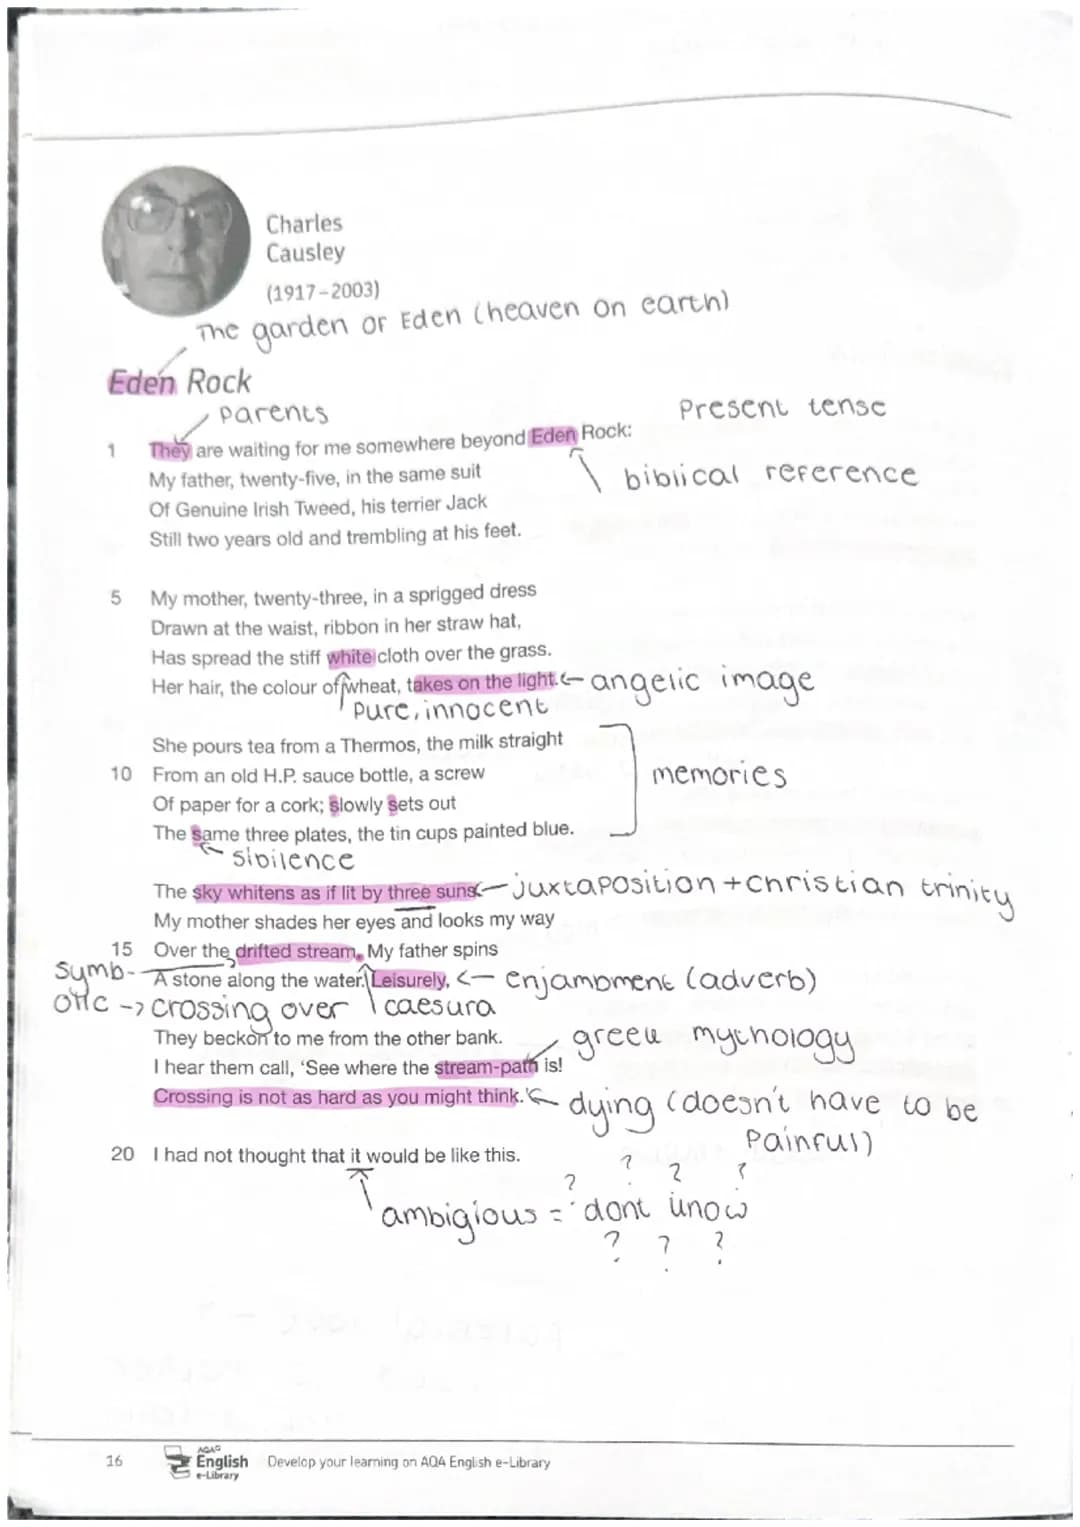 Charles
Causley
(1917-2003)
The garden of Eden (heaven on earth)
Eden Rock
parents
Present tense
1 They are waiting for me somewhere beyond Eden Rock:
biblical reference
My father, twenty-five, in the same suit
Of Genuine Irish Tweed, his terrier Jack
Still two years old and trembling at his feet.
5 My mother, twenty-three, in a sprigged dress
Drawn at the waist, ribbon in her straw hat,
Has spread the stiff white cloth over the grass.
Her hair, the colour of wheat, takes on the light. <- angelic image
Pure, innocent
She pours tea from a Thermos, the milk straight
10 From an old H.P. sauce bottle, a screw
memories
Of paper for a cork; slowly sets out
The same three plates, the tin cups painted blue.
sibilence
The sky whitens as if lit by three suns. <- juxtaposition + christian trinity
My mother shades her eyes and looks my way
15 Over the drifted stream. My father spins
Symb-
A stone along the water. Leisurely, <- enjambment (adverb)
olic -> crossing over
caesura
They beckon to me from the other bank.
greek mythology
I hear them call, 'See where the stream-path is!
Crossing is not as hard as you might think.' <- dying (doesn't have to be
painful)
20 I had not thought that it would be like this.
? ? ? ?
ambigious = dont know
? ? ?
16
AQA
English
e-Library
Develop your learning on AQA English e-Library